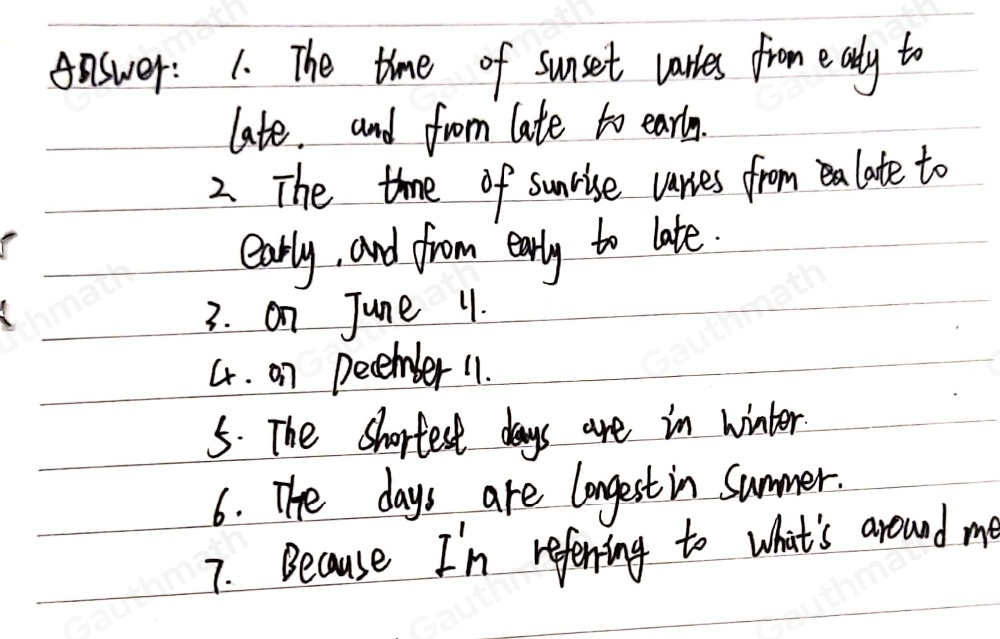 Answer: 1. The time of sunset varies from early to
late. and from late to early.
2 The time of sunrise varies from ea late to
early, and from early to late.
3. on June 11.
4. on December 11.
5. The shortest days are in winter.
6. The days are longest in summer.
7. Because I'm referring to what's around me